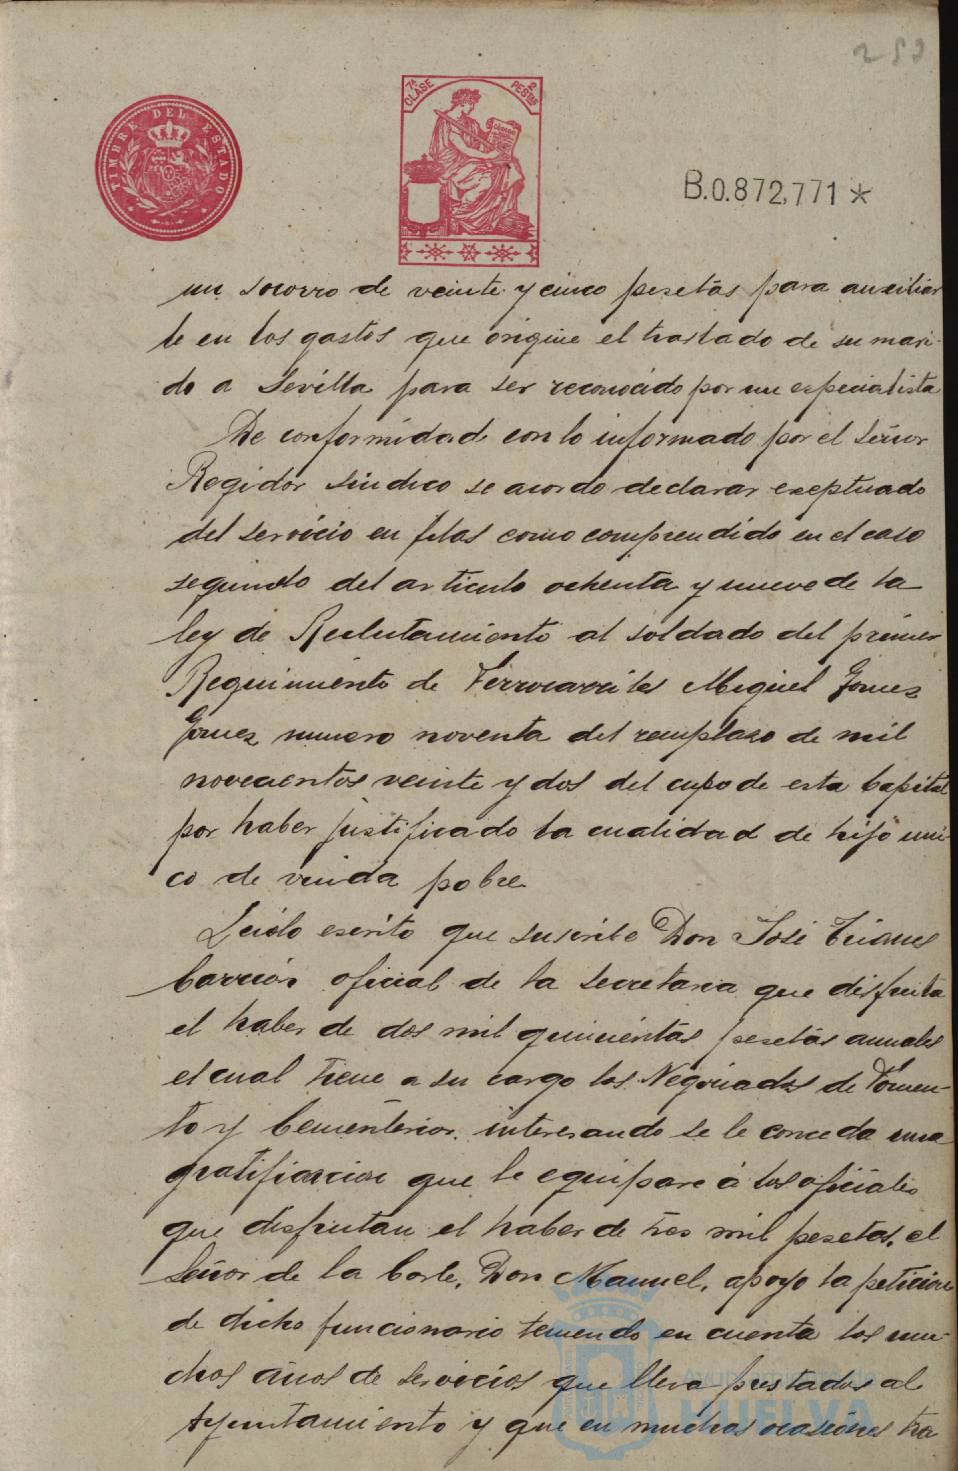 253
TIMBRE DEL ESTADO
7ª CLASE
2 PESTAS
B.0.872,771 *
un socorro de veinte y cinco pesetas para auxiliar
le en los gastos que origine el traslado de su mari-
do a Sevilla para ser reconocido por un especialista
De conformidad con lo informado por el Señor
Regidor Sindico se acordo declarar exeptuado
del servicio en filas como comprendido en el caso
segundo del articulo ochenta y nueve de la
ley de Reclutamiento al soldado del primer
Reguimiento de Ferrocarriles Miguel Gomez
Gomez numero noventa del remplazo de mil
novecientos veinte y dos del cupo de esta Capital
por haber justificado la cualidad de hijo uni-
co de viuda pobre
Leido escrito que suscribe Don José
Carrión oficial de la Secretaria que disfruta
el haber de dos mil quinientas pesetas anuales
el cual tiene a su cargo los Negociados de Fomen-
to y Cementerios. interesando se le conceda una
gratificacion que le equipare á los oficiales
que disfrutan el haber de tres mil pesetas. el
Señor de la Corte, Don Manuel, apoyo la peticion
de dicho funcionario teniendo en cuenta los mu-
chos años de servicios que lleva prestados al
Ayuntamiento y que en muchas ocasiones ha
Ayuntamiento de
HUELVA